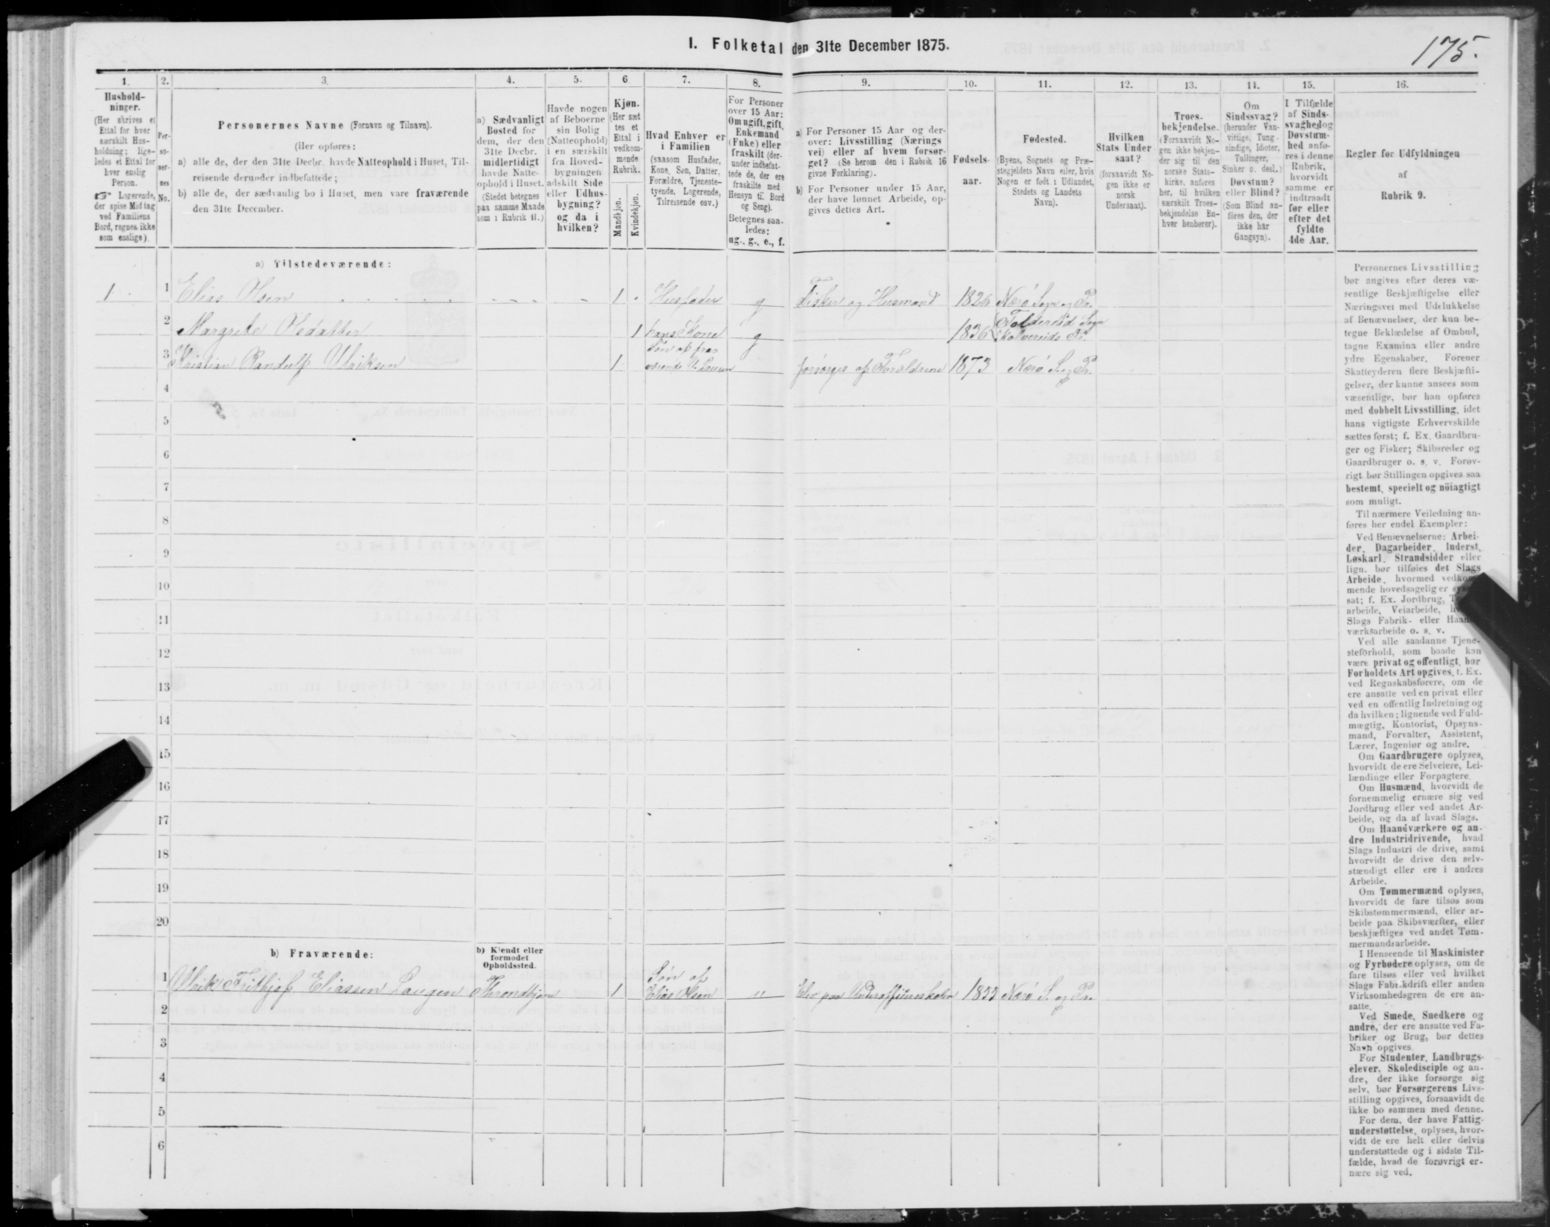 I. Folketal den 31te December 1875.
175.
1.
2.
3.
4.
5.
6.
7.
8.
9.
10.
11.
12.
13.
14.
15.
16.
Hushold-
ninger.
(Her skrives et
Ettal for hver
særskilt Hus-
holdning; lige-
ledes et Ettal for
hver enslig
Person.
☞ Logerende,
der spise Middag
ved Familiens
Bord, regnes ikke
som enslige).
Per-
so-
ner-
nes
No.
Personernes Navne (Fornavn og Tilnavn).
(Her opføres:
a) alle de, der den 31te Decbr. havde Natteophold i Huset, Til-
reisende derunder indbefattede;
b) alle de, der sædvanlig bo i Huset, men vare fraværende
den 31te December.
a) Sædvanligt
Bosted for
dem, der den
31te Decbr.
midlertidigt
havde Natte-
ophold i Huset.
(Stedet betegnes
paa samme Maade
som i Rubrik 11.)
Havde nogen
af Beboerne
sin Bolig
(Natteophold)
i en særskilt
fra Hoved-
bygningen
adskilt Side
eller Udhus-
bygning?
og da i
hvilken?
Kjøn.
(Her sæt
tes et
Ettal i
vedkom-
mende
Rubrik.
Mandkjøn.
Kvindekjøn.
Hvad Enhver er
i Familien
(saasom Husfader,
Kone, Søn, Datter,
Forældre, Tjeneste-
tyende, Logerende,
Tilreisende osv.)
For Personer
over 15 Aar:
Om ugift, gift,
Enkemand
(Enke) eller
fraskilt (der-
under indbefat-
tede de, der ere
fraskilte med
Hensyn til Bord
og Seng).
Betegnes saa-
ledes:
ug., g., e., f.
a) For Personer 15 Aar og der-
over: Livsstilling (Nærings
vei) eller af hvem forsør-
get? (Se herom den i Rubrik 16
givne Forklaring).
b) For Personer under 15 Aar,
der have lønnet Arbeide, op-
gives dettes Art.
Fødsels-
aar.
Fødested.
(Byens, Sognets og Præ-
stegjeldets Navn eller, hvis
Nogen er født i Udlandet,
Stedets og Landets
Navn).
Hvilken
Stats Under
saat?
(forsaavidt No-
gen ikke er
norsk
Undersaat).
Troes-
bekjendelse.
(Forsaavidt No-
gen ikke bekjen-
der sig til den
norske Stats-
kirke, anføres
her, til hvilken
særskilt Troes-
bekjendelse En-
hver henhører).
Om
Sindssvag?
(herunder Van-
vittige, Tung-
sindige, Idioter,
Tullinger,
Sinker o. desl.)
Døvstum?
eller Blind?
(Som Blind an-
føres den, der
ikke har
Gangsyn).
I Tilfælde
af Sinds-
svaghed og
Døvstum-
hed anfø-
res i denne
Rubrik,
hvorvidt
samme er
indtraadt
før eller
efter det
fyldte
4de Aar.
Regler for Udfyldningen
af
Rubrik 9.
a) Tilstedeværende:
1 1 Elias Olsen 1 Husfader g Fisker og Husmand 1826 Nærø Sogn og Pr.
2 Margrete Olsdatter 1 hans Kone g 1836 Foldereid Sogn
Kolvereids Pr.
3 Kristian Randulf Ulriksen 1 Søn af fra-
værende U. Laugen forsørges af Forældrene 1873 Nærø S. og Pr.
4
5
6
7
8
9
10
11
12
13
14
15
16
17
18
19
20
b) Fraværende:
b) Kjendt eller
formodet
Opholdssted.
1 Ulrik Fridthjof Eliassen Laugen Throndhjem 1 Søn af
Elias Olsen " Elev paa Underofficerskolen 1853 Nærø S. og Pr.
2
3
4
5
6
Personernes Livsstilling
bør angives efter deres væ-
sentlige Beskjæftigelse eller
Næringsvei med Udelukkelse
af Benævnelser, der kun be-
tegne Beklædelse af Ombud,
tagne Examina eller andre
ydre Egenskaber. Forener
Skatteyderen flere Beskjæfti-
gelser, der kunne ansees som
væsentlige, bør han opføres
med dobbelt Livsstilling, idet
hans vigtigste Erhvervskilde
sættes først; f. Ex. Gaardbru-
ger og Fisker; Skibsreder og
Gaardbruger o. s. v. Forøv-
rigt bør Stillingen opgives saa
bestemt, specielt og nöiagtigt
som muligt.
Til nærmere Veiledning an-
føres her endel Exempler:
Ved Benævnelserne: Arbei-
der, Dagarbeider, Inderst,
Løskarl, Strandsidder eller
lign. bør tilføies det Slags
Arbeide, hvormed
mende hovedsagelig er
sat; f. Ex. Jordbrug,
arbeide, Veiarbeide,
Slags Fabrik- eller
værksarbeide o. s. v.
Ved alle saadanne Tjene-
steforhold, som baade kan
være privat og offentligt, bør
Forholdets Art opgives, f. Ex.
ved Regnskabsførere, om de
ere ansatte ved en privat eller
ved en offentlig Indretning og
da hvilken; lignende ved Fuld-
mægtig, Kontorist, Opsyns-
mand, Forvalter, Assistent,
Lærer, Ingeniør og andre.
Om Gaardbrugere oplyses,
hvorvidt de ere Selveiere, Lei-
lændinge eller Forpagtere.
Om Husmænd, hvorvidt de
fornemmelig ernære sig ved
Jordbrug eller ved andet Ar-
beide, og da af hvad Slags.
Om Haandværkere og an-
dre Industridrivende, hvad
Slags Industri de drive, samt
hvorvidt de drive den selv-
stændigt eller ere i andres
Arbeide.
Om Tømmermænd oplyses,
hvorvidt de fare tilsøs som
Skibstømmermænd, eller ar-
beide paa Skibsværfter, eller
beskjæftiges ved andet Tøm-
mermandsarbeide.
I Henseende til Maskinister
og Fyrbødere oplyses, om de
fare tilsøs eller ved hvilket
Slags Fabrikdrift eller anden
Virksomhedsgren de ere an-
satte.
Ved Smede, Snedkere og
andre, der ere ansatte ved Fa-
briker og Brug, bør dettes
Navn opgives.
For Studenter, Landbrugs-
elever, Skoledisciple og an-
dre, der ikke forsørge sig
selv, bør Forsørgerens Livs-
stilling opgives, forsaavidt de
ikke bo sammen med denne.
For dem, der have Fattig-
understøttelse, oplyses, hvor-
vidt de ere helt eller delvis
understøttede og i sidste Til-
fælde, hvad de forøvrigt er-
nære sig ved.